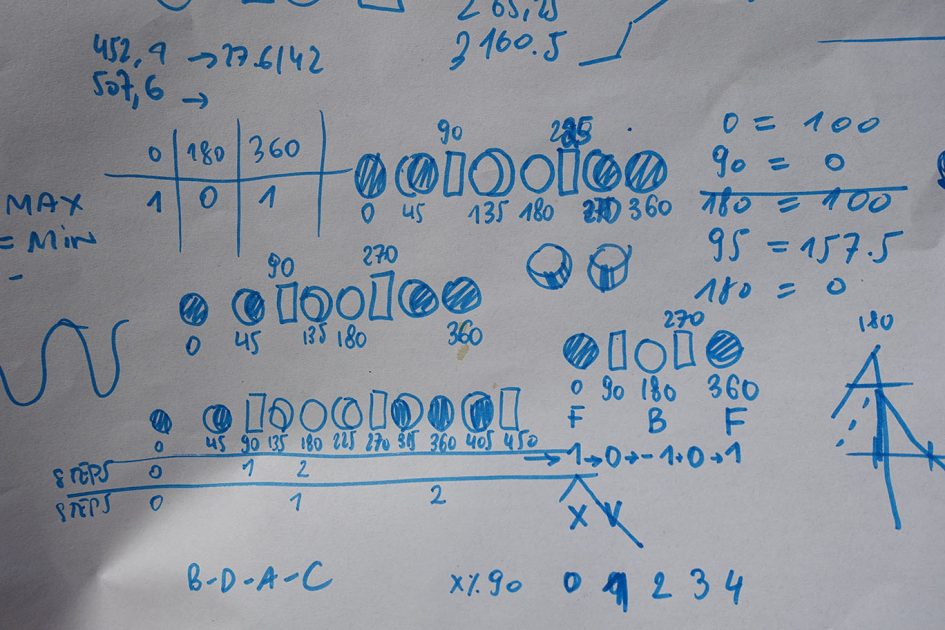 265,25
3160.5
452,1 → 27.6/42
507,6 →
0 180 360
1 0 1
MAX
= MiN
-
90
0 45 135 180 360
0 = 100
90 = 0
180 = 100
95 = 157.5
180 = 0
90 270
0 45 135 180 360
270
0 90 180 360
F B F
→ 1→0→-1→0→1
X V
180
0 45 90 135 180 225 270 315 360 405 450
STEPS 0 1 2
STEPS 0 1 2
B-D-A-C
x%90 0 1 2 3 4